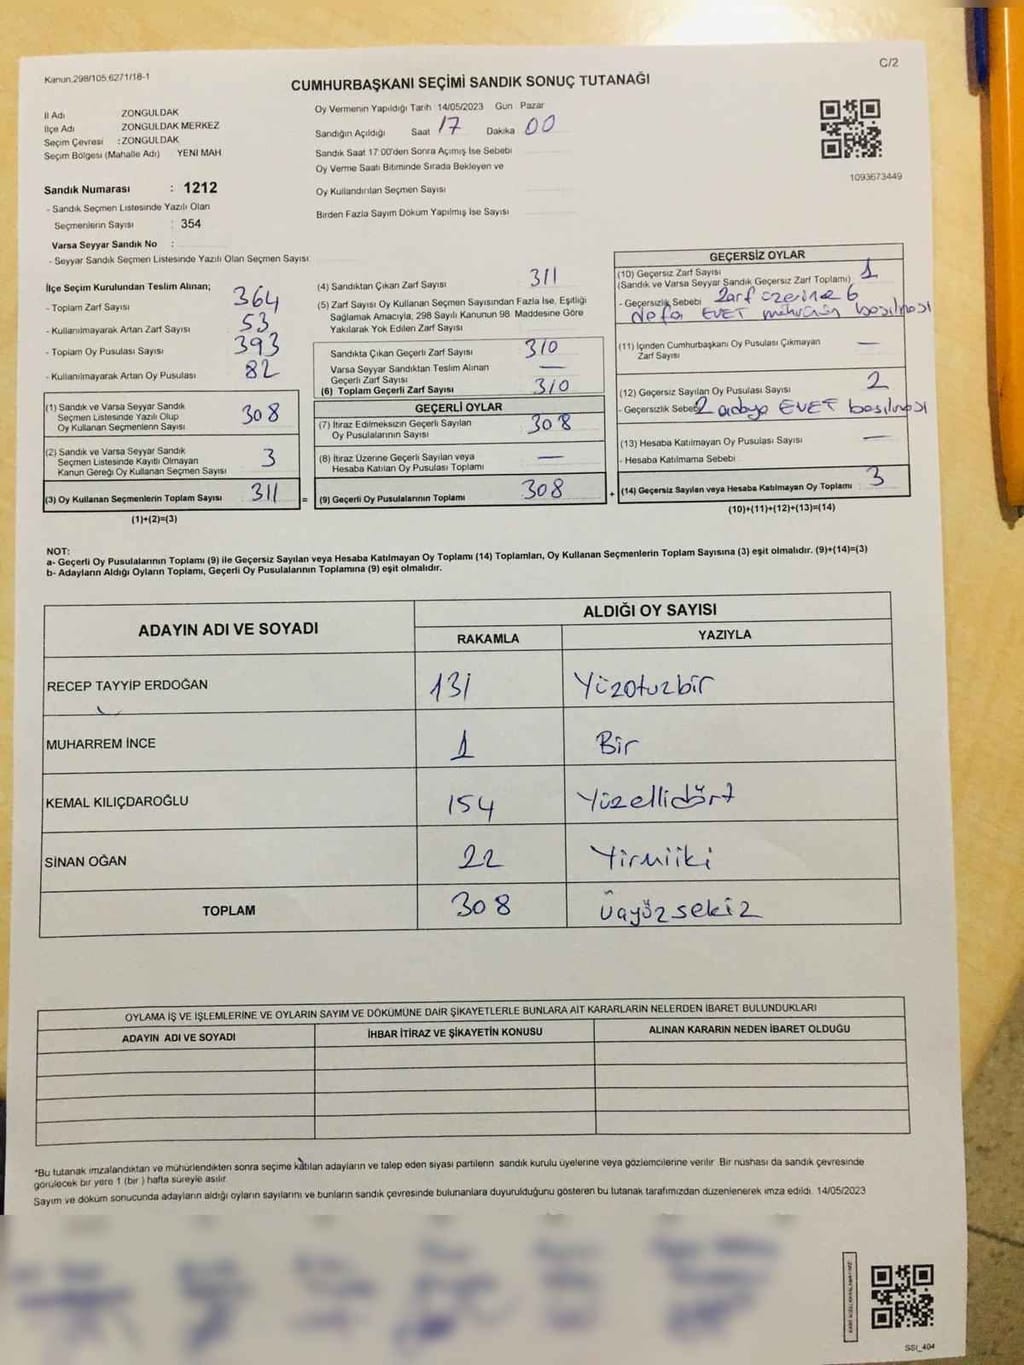 Kanun.298/105,6271/18-1
C/2
CUMHURBAŞKANI SEÇİMİ SANDIK SONUÇ TUTANAĞI
İl Adı ZONGULDAK
İlçe Adı ZONGULDAK MERKEZ
Seçim Çevresi :ZONGULDAK
Seçim Bölgesi (Mahalle Adı) YENİ MAH
Sandık Numarası : 1212
- Sandık Seçmen Listesinde Yazılı Olan
Seçmenlerin Sayısı : 354
Varsa Seyyar Sandık No :
- Seyyar Sandık Seçmen Listesinde Yazılı Olan Seçmen Sayısı
Oy Vermenin Yapıldığı Tarih 14/05/2023 Gün Pazar
Sandığın Açıldığı Saat 17 Dakika 00
Sandık Saat 17:00'den Sonra Açılmış İse Sebebi
Oy Verme Saati Bitiminde Sırada Bekleyen ve
Oy Kullandırılan Seçmen Sayısı
Birden Fazla Sayım Döküm Yapılmış İse Sayısı
1093673449
İlçe Seçim Kurulundan Teslim Alınan;
- Toplam Zarf Sayısı 364
- Kullanılmayarak Artan Zarf Sayısı 53
- Toplam Oy Pusulası Sayısı 393
- Kullanılmayarak Artan Oy Pusulası 82
(1) Sandık ve Varsa Seyyar Sandık
Seçmen Listesinde Yazılı Olup
Oy Kullanan Seçmenlerin Sayısı 308
(2) Sandık ve Varsa Seyyar Sandık
Seçmen Listesinde Kayıtlı Olmayan
Kanun Gereği Oy Kullanan Seçmen Sayısı 3
(3) Oy Kullanan Seçmenlerin Toplam Sayısı 311
(1)+(2)=(3)
(4) Sandıktan Çıkan Zarf Sayısı 311
(5) Zarf Sayısı Oy Kullanan Seçmen Sayısından Fazla İse, Eşitliği
Sağlamak Amacıyla, 298 Sayılı Kanunun 98 Maddesine Göre
Yakılarak Yok Edilen Zarf Sayısı
Sandıkta Çıkan Geçerli Zarf Sayısı 310
Varsa Seyyar Sandıktan Teslim Alınan
Geçerli Zarf Sayısı —
(6) Toplam Geçerli Zarf Sayısı 310
GEÇERLİ OYLAR
(7) İtiraz Edilmeksizin Geçerli Sayılan
Oy Pusulalarının Sayısı 308
(8) İtiraz Üzerine Geçerli Sayılan veya
Hesaba Katılan Oy Pusulası Toplamı —
= (9) Geçerli Oy Pusulalarının Toplamı 308
GEÇERSİZ OYLAR
(10) Geçersiz Zarf Sayısı 1
(Sandık ve Varsa Seyyar Sandık Geçersiz Zarf Toplamı)
- Geçersizlik Sebebi Zarf üzerine 6
defa EVET mührünün basılması
(11) İçinden Cumhurbaşkanı Oy Pusulası Çıkmayan
Zarf Sayısı —
(12) Geçersiz Sayılan Oy Pusulası Sayısı 2
- Geçersizlik Sebebi 2 adaya EVET basılması
(13) Hesaba Katılmayan Oy Pusulası Sayısı —
- Hesaba Katılmama Sebebi
+ (14) Geçersiz Sayılan veya Hesaba Katılmayan Oy Toplamı 3
(10)+(11)+(12)+(13)=(14)
NOT:
a- Geçerli Oy Pusulalarının Toplamı (9) ile Geçersiz Sayılan veya Hesaba Katılmayan Oy Toplamı (14) Toplamları, Oy Kullanan Seçmenlerin Toplam Sayısına (3) eşit olmalıdır. (9)+(14)=(3)
b- Adayların Aldığı Oyların Toplamı, Geçerli Oy Pusulalarının Toplamına (9) eşit olmalıdır.
ADAYIN ADI VE SOYADI
ALDIĞI OY SAYISI
RAKAMLA YAZIYLA
RECEP TAYYİP ERDOĞAN 131 Yüzotuzbir
MUHARREM İNCE 1 Bir
KEMAL KILIÇDAROĞLU 154 Yüzellidört
SİNAN OĞAN 22 Yirmiiki
TOPLAM 308 üçyüzsekiz
OYLAMA İŞ VE İŞLEMLERİNE VE OYLARIN SAYIM VE DÖKÜMÜNE DAİR ŞİKAYETLERLE BUNLARA AİT KARARLARIN NELERDEN İBARET BULUNDUKLARI
ADAYIN ADI VE SOYADI İHBAR İTİRAZ VE ŞİKAYETİN KONUSU ALINAN KARARIN NEDEN İBARET OLDUĞU
*Bu tutanak imzalandıktan ve mühürlendikten sonra seçime katılan adayların ve talep eden siyasi partilerin sandık kurulu üyelerine veya gözlemcilerine verilir. Bir nüshası da sandık çevresinde
görülecek bir yere 1 (bir ) hafta süreyle asılır.
Sayım ve döküm sonucunda adayların aldığı oyların sayılarını ve bunların sandık çevresinde bulunanlara duyurulduğunu gösteren bu tutanak tarafımızdan düzenlenerek imza edildi. 14/05/2023
SSI_404